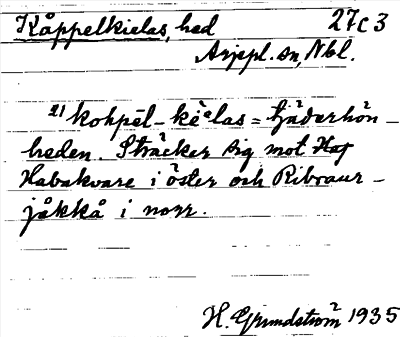 Kåppelkielas, hed 27c3
Arjepl. sn, Nbl.
21 kohpēl-kēelas = tjäderhön-
heden. Sträcker sig mot
Habakvare i öster och Ribraur-
jåkkå i norr.
H. Grundström 1935